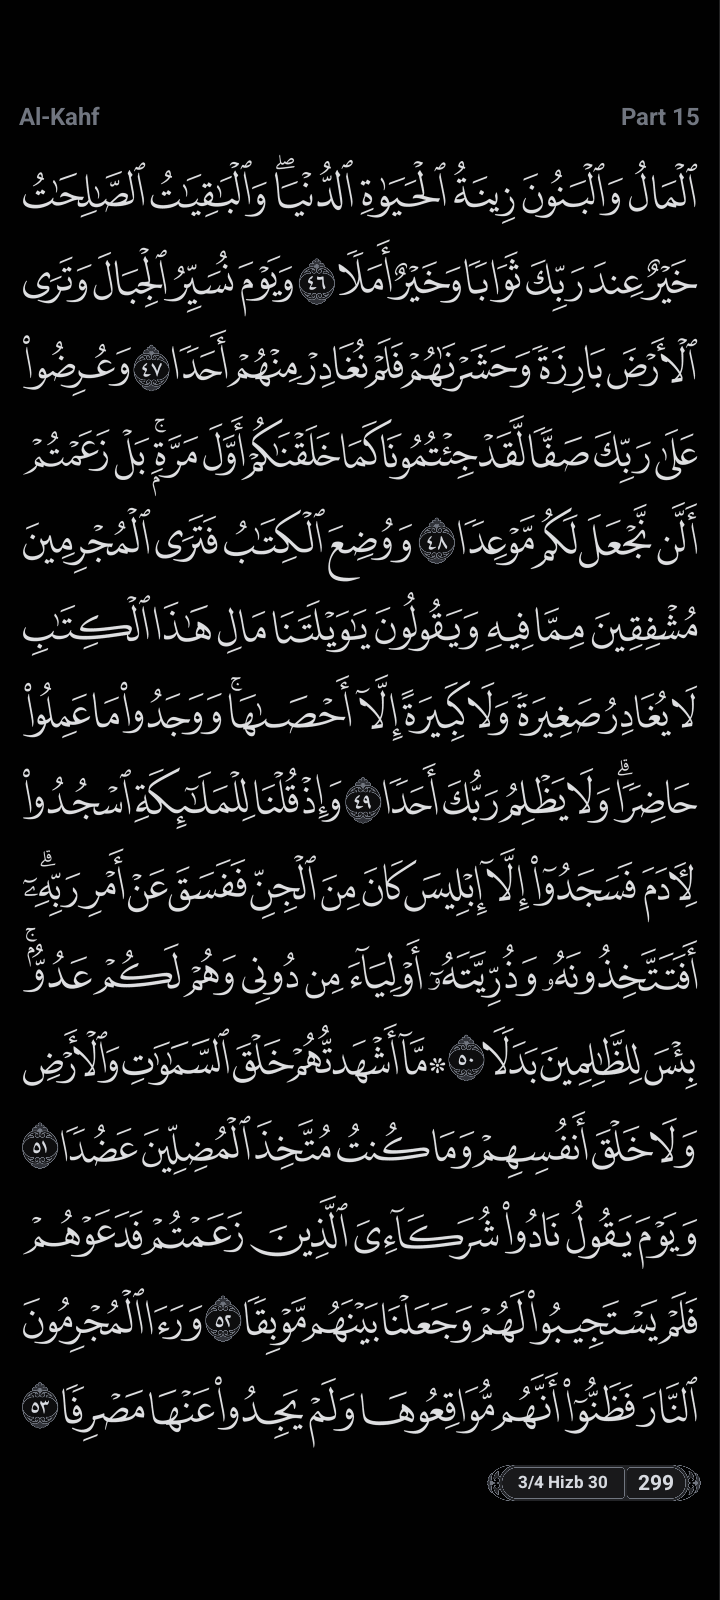 Al-Kahf
Part 15
ٱلۡمَالُ وَٱلۡبَنُونَ زِينَةُ ٱلۡحَيَوٰةِ ٱلدُّنۡيَاۖ وَٱلۡبَٰقِيَٰتُ ٱلصَّٰلِحَٰتُ
خَيۡرٌ عِندَ رَبِّكَ ثَوَابٗا وَخَيۡرٌ أَمَلٗا ٤٦ وَيَوۡمَ نُسَيِّرُ ٱلۡجِبَالَ وَتَرَى
ٱلۡأَرۡضَ بَارِزَةٗ وَحَشَرۡنَٰهُمۡ فَلَمۡ نُغَادِرۡ مِنۡهُمۡ أَحَدٗا ٤٧ وَعُرِضُواْ
عَلَىٰ رَبِّكَ صَفّٗا لَّقَدۡ جِئۡتُمُونَا كَمَا خَلَقۡنَٰكُمۡ أَوَّلَ مَرَّةِۭۚ بَلۡ زَعَمۡتُمۡ
أَلَّن نَّجۡعَلَ لَكُم مَّوۡعِدٗا ٤٨ وَوُضِعَ ٱلۡكِتَٰبُ فَتَرَى ٱلۡمُجۡرِمِينَ
مُشۡفِقِينَ مِمَّا فِيهِ وَيَقُولُونَ يَٰوَيۡلَتَنَا مَالِ هَٰذَا ٱلۡكِتَٰبِ
لَا يُغَادِرُ صَغِيرَةٗ وَلَا كَبِيرَةً إِلَّآ أَحۡصَىٰهَاۚ وَوَجَدُواْ مَا عَمِلُواْ
حَاضِرٗاۗ وَلَا يَظۡلِمُ رَبُّكَ أَحَدٗا ٤٩ وَإِذۡ قُلۡنَا لِلۡمَلَٰٓئِكَةِ ٱسۡجُدُواْ
لِأٓدَمَ فَسَجَدُوٓاْ إِلَّآ إِبۡلِيسَ كَانَ مِنَ ٱلۡجِنِّ فَفَسَقَ عَنۡ أَمۡرِ رَبِّهِۦٓۗ
أَفَتَتَّخِذُونَهُۥ وَذُرِّيَّتَهُۥٓ أَوۡلِيَآءَ مِن دُونِي وَهُمۡ لَكُمۡ عَدُوُّۢۚ
بِئۡسَ لِلظَّٰلِمِينَ بَدَلٗا ٥٠ ۞ مَّآ أَشۡهَدتُّهُمۡ خَلۡقَ ٱلسَّمَٰوَٰتِ وَٱلۡأَرۡضِ
وَلَا خَلۡقَ أَنفُسِهِمۡ وَمَا كُنتُ مُتَّخِذَ ٱلۡمُضِلِّينَ عَضُدٗا ٥١
وَيَوۡمَ يَقُولُ نَادُواْ شُرَكَآءِيَ ٱلَّذِينَ زَعَمۡتُمۡ فَدَعَوۡهُمۡ
فَلَمۡ يَسۡتَجِيبُواْ لَهُمۡ وَجَعَلۡنَا بَيۡنَهُم مَّوۡبِقٗا ٥٢ وَرَءَا ٱلۡمُجۡرِمُونَ
ٱلنَّارَ فَظَنُّوٓاْ أَنَّهُم مُّوَاقِعُوهَا وَلَمۡ يَجِدُواْ عَنۡهَا مَصۡرِفٗا ٥٣
3/4 Hizb 30
299